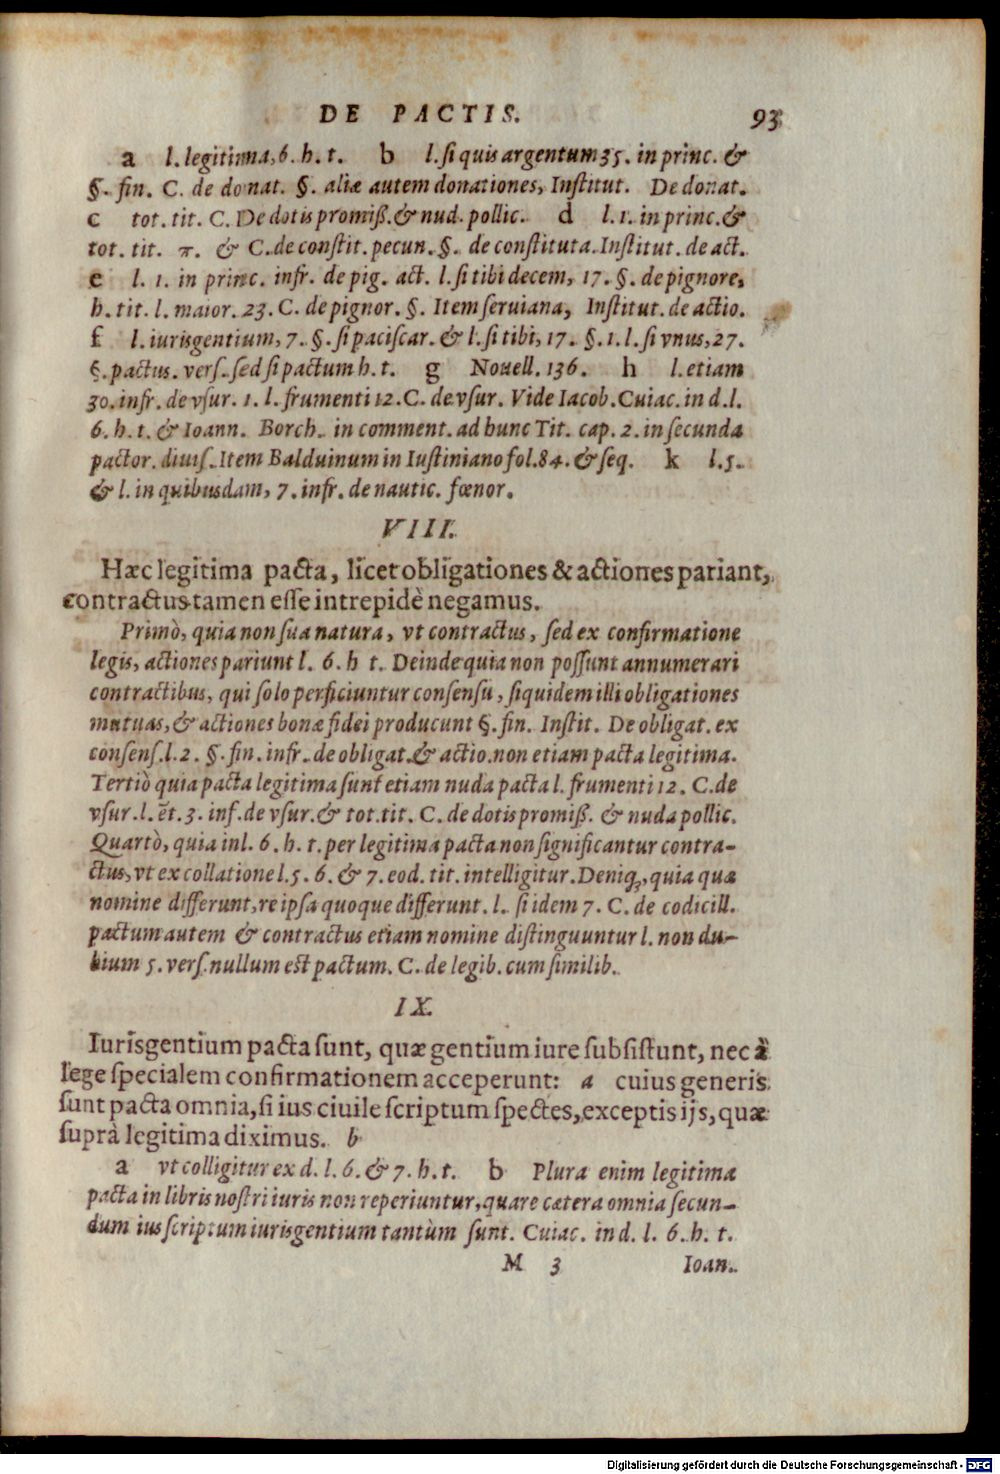 DE PACTIS. 93
a l. legitima, 6. h. t. b l. si quis argentum 35. in princ. &
§. fin. C. de donat. §. aliæ autem donationes, Institut. De donat.
c tot. tit. C. De dotis promiß. & nud. pollic. d l. 1. in princ. &
tot. tit. π. & C. de constit. pecun. §. de constituta. Institut. de act.
e l. 1. in princ. infr. de pig. act. l. si tibi decem, 17. §. de pignore,
h. tit. l. maior. 23. C. de pignor. §. Item seruiana, Institut. de actio.
f l. iurisgentium, 7. §. si paciscar. & l. si tibi, 17. §. 1. l. si vnus, 27.
§. pactus. vers. sed si pactum h. t. g Nouell. 136. h l. etiam
30. infr. de vsur. 1. l. frumenti 12. C. de vsur. Vide Iacob. Cuiac. in d. l.
6. h. t. & Ioann. Borch. in comment. ad hunc Tit. cap. 2. in secunda
pactor. diuis. Item Balduinum in Iustiniano fol. 84. & seq. k l. 5.
& l. in quibusdam, 7. infr. de nautic. fœnor.
VIII.
Hæc legitima pacta, licet obligationes & actiones pariant,
contractus tamen esse intrepidè negamus.
Primò, quia non sua natura, vt contractus, sed ex confirmatione
legis, actiones pariunt l. 6. h t. Deinde quia non possunt annumerari
contractibus, qui solo perficiuntur consensu, siquidem illi obligationes
mutuas, & actiones bonæ fidei producunt §. fin. Instit. De obligat. ex
consens. l. 2. §. fin. infr. de obligat. & actio. non etiam pacta legitima.
Tertiò quia pacta legitima sunt etiam nuda pacta l. frumenti 12. C. de
vsur. l. ēt. 3. inf. de vsur. & tot. tit. C. de dotis promiß. & nuda pollic.
Quartò, quia in l. 6. h. t. per legitima pacta non significantur contra-
ctus, vt ex collatione l. 5. 6. & 7. eod. tit. intelligitur. Deniq́;, quia quæ
nomine differunt, re ipsa quoque differunt. l. si idem 7. C. de codicill.
pactum autem & contractus etiam nomine distinguuntur l. non du-
bium 5. vers. nullum est pactum. C. de legib. cum similib.
IX.
Iurisgentium pacta sunt, quæ gentium iure subsistunt, nec à
lege specialem confirmationem acceperunt: a cuius generis
sunt pacta omnia, si ius ciuile scriptum spectes, exceptis ijs, quæ
suprà legitima diximus. b
a vt colligitur ex d. l. 6. & 7. h. t. b Plura enim legitima
pacta in libris nostri iuris non reperiuntur, quare cætera omnia secun-
dum ius scriptum iurisgentium tantùm sunt. Cuiac. in d. l. 6. h. t.
M 3 Ioan.
Digitalisierung gefördert durch die Deutsche Forschungsgemeinschaft - DFG